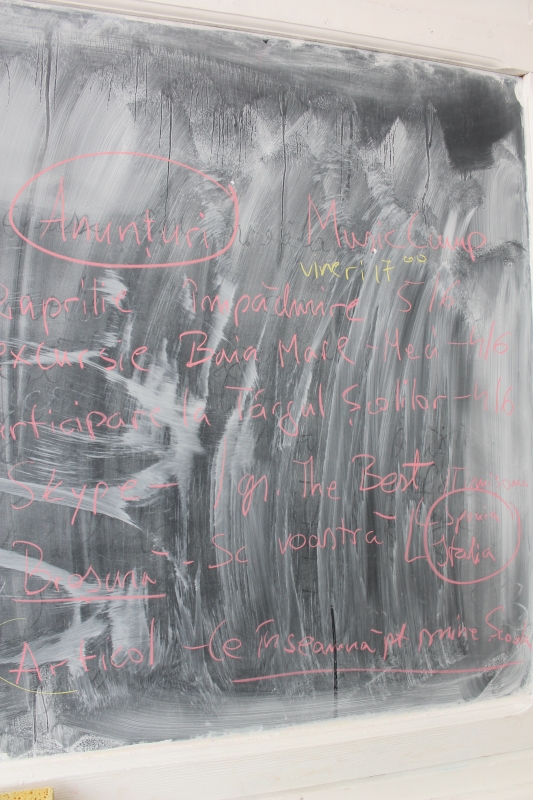 Anunțuri Music Camp
vineri 17 00
aprilie împădurire 5
excursie Baia Mare - 4/6
participare la Târgul Școlilor - 4/6
Skype - 1 gr. The Best
Broșură - Sc voastră
Italia
Articol - Ce înseamnă pt mine Școala